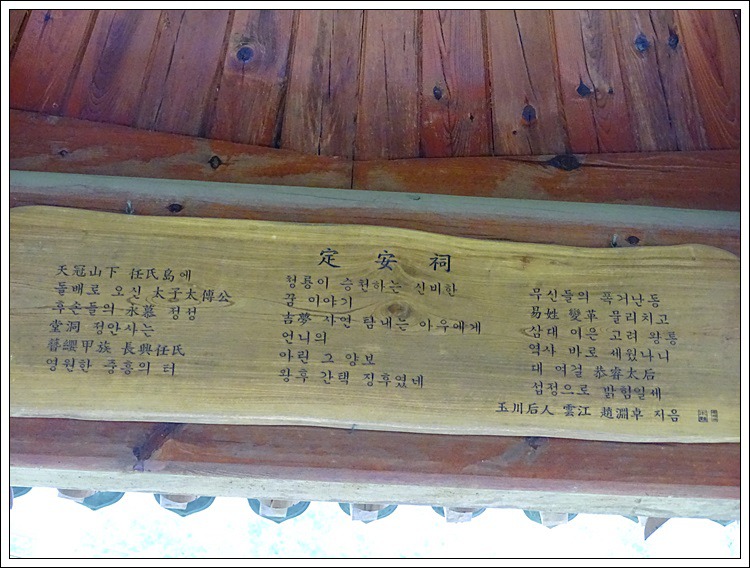 定安祠
天冠山下 任氏島에
돌배로 오신 太子太傅公
후손들의 永慕 정성
堂洞 정안사는
簪纓甲族 長興任氏
영원한 중흥의 터
청룡이 승천하는 신비한
꿈 이야기
吉夢 사연 탐내는 아우에게
언니의
아린 그 양보
왕후 간택 징후였네
무신들의 폭거난동
易姓 變革 물리치고
삼대 이은 고려 왕통
역사 바로 세웠나니
대 여걸 恭睿太后
섭정으로 밝힘일세
玉川后人 雲江 趙淵卓 지음